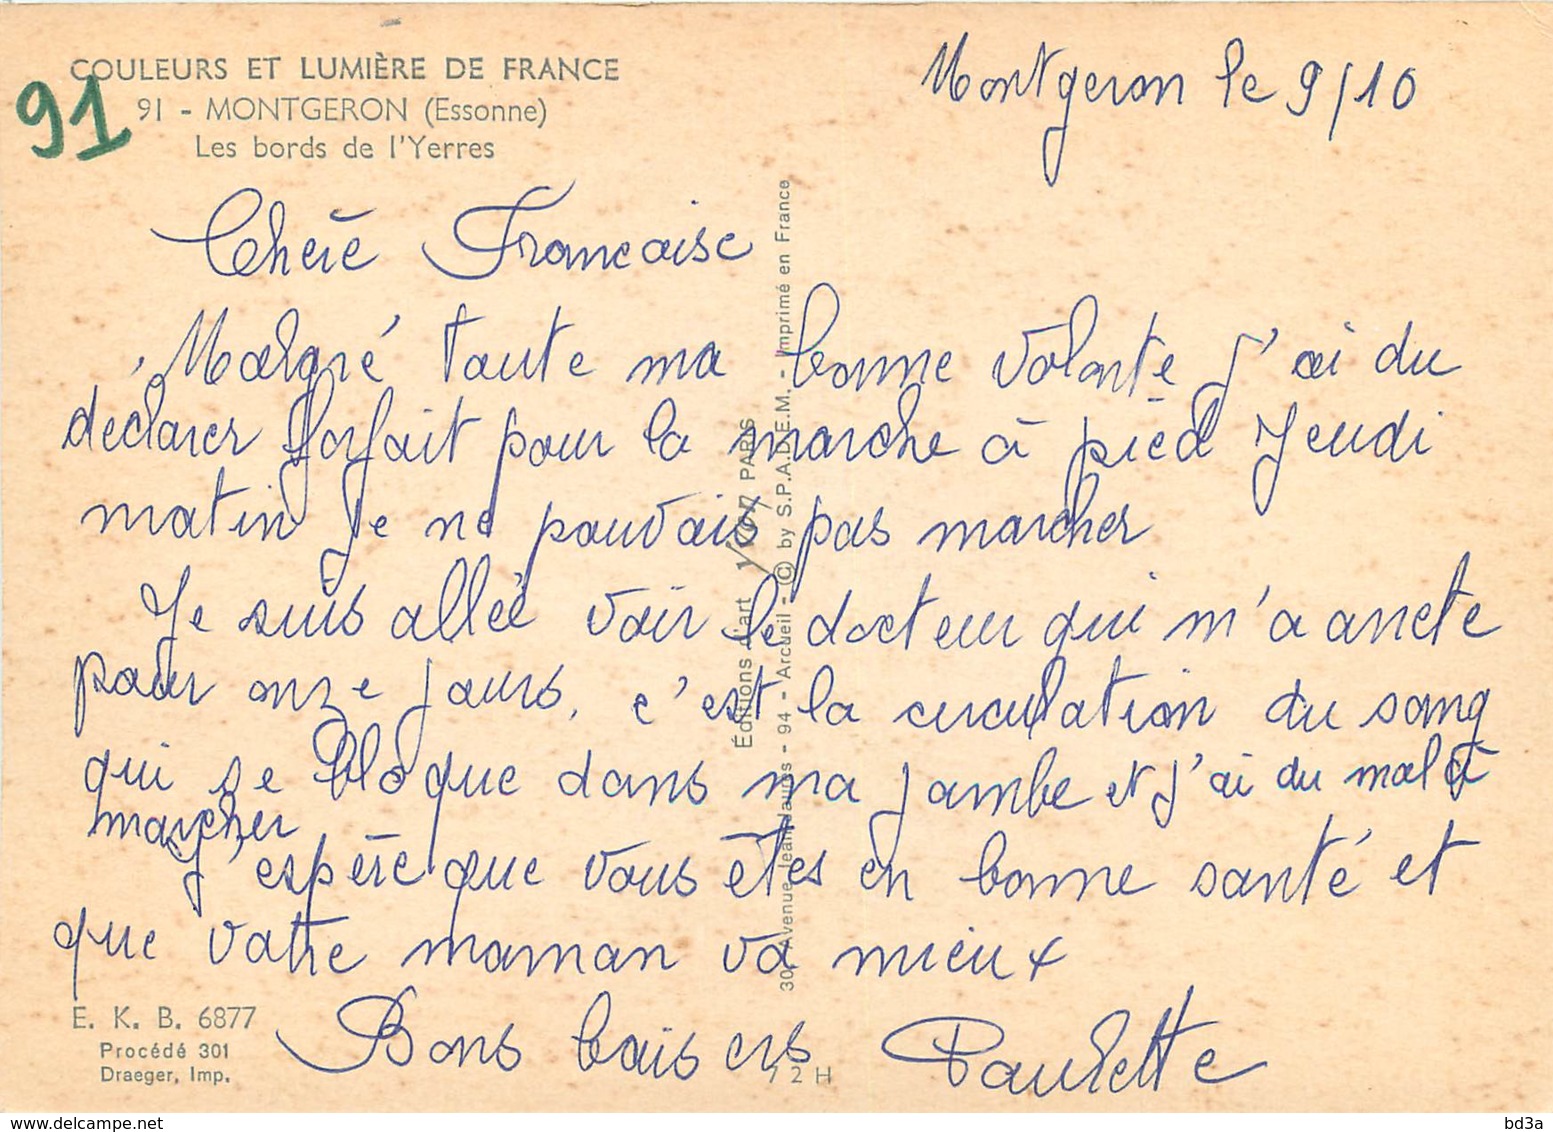 COULEURS ET LUMIÈRE DE FRANCE
91 - MONTGERON (Essonne)
Les bords de l'Yerres
91
Montgeron le 9/10
Chère Francaise
Malgré toute ma bonne volonte j'ai du
declarer forfait pour la marche à pied Jeudi
matin je ne pouvais pas marcher
Je suis allée voir le docteur qui m'a arrete
pour onze jours, c'est la circulation du sang
qui se bloque dans ma jambe et j'ai du mal à
marcher
J'espère que vous êtes en bonne santé et
que votre maman va mieux
Bons baisers Paulette
Éditions d'art yvon PARIS
30, Avenue Jean Jaurès - 94 - Arcueil - © by S.P.A.D.E.M. - Imprimé en France
E. K. B. 6877
Procédé 301
Draeger, Imp.
72H
delcampe.net
bd3a